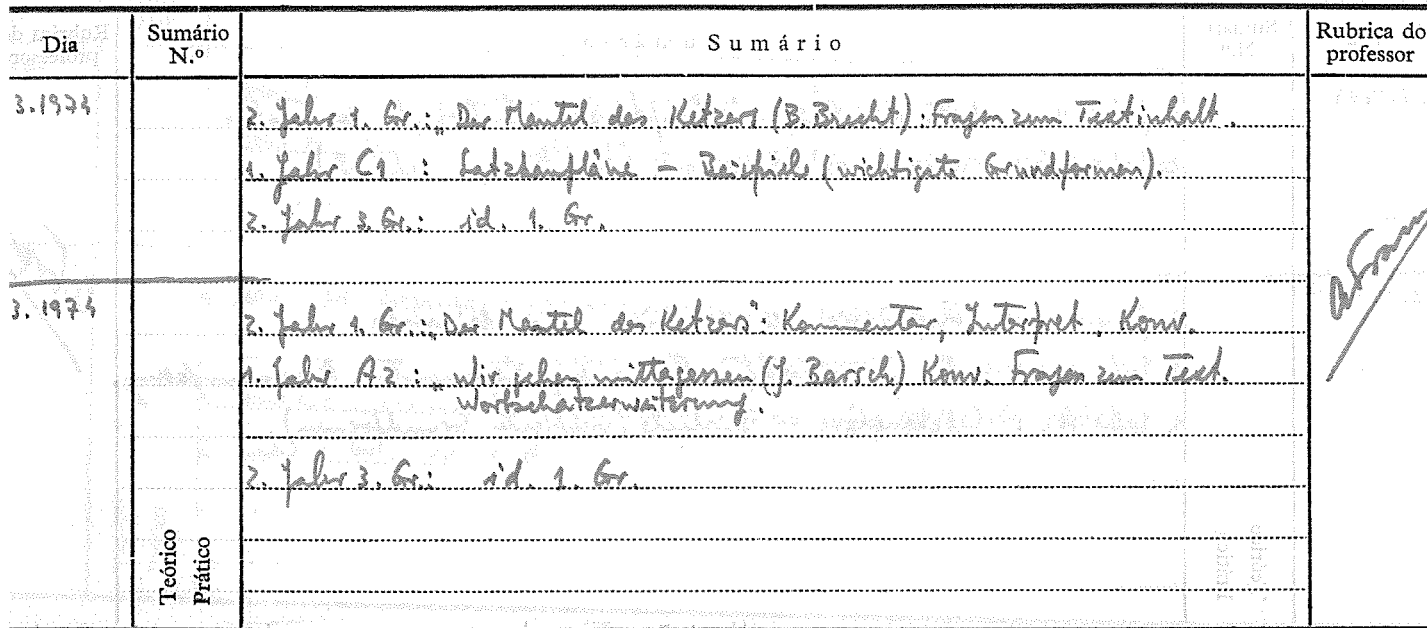 Dia Sumário N.º Sumário Rubrica do professor
3.1974 2. Jahr 1. Gr.: „Der Mantel des Ketzers (B. Brecht): Fragen zum Textinhalt.
1. Jahr C1 : Satzbaupläne – Beispiele (wichtigste Grundformen).
2. Jahr 3. Gr.: id. 1. Gr.
3. 1974 2. Jahr 1. Gr.: „Der Mantel des Ketzers": Kommentar, Interpret., Konv.
1. Jahr A2 : „Wir gehen mittagessen (J. Barsch) Konv. Fragen zum Text.
Wortschatzerweiterung.
2. Jahr 3. Gr.: id. 1. Gr.
Teórico
Prático